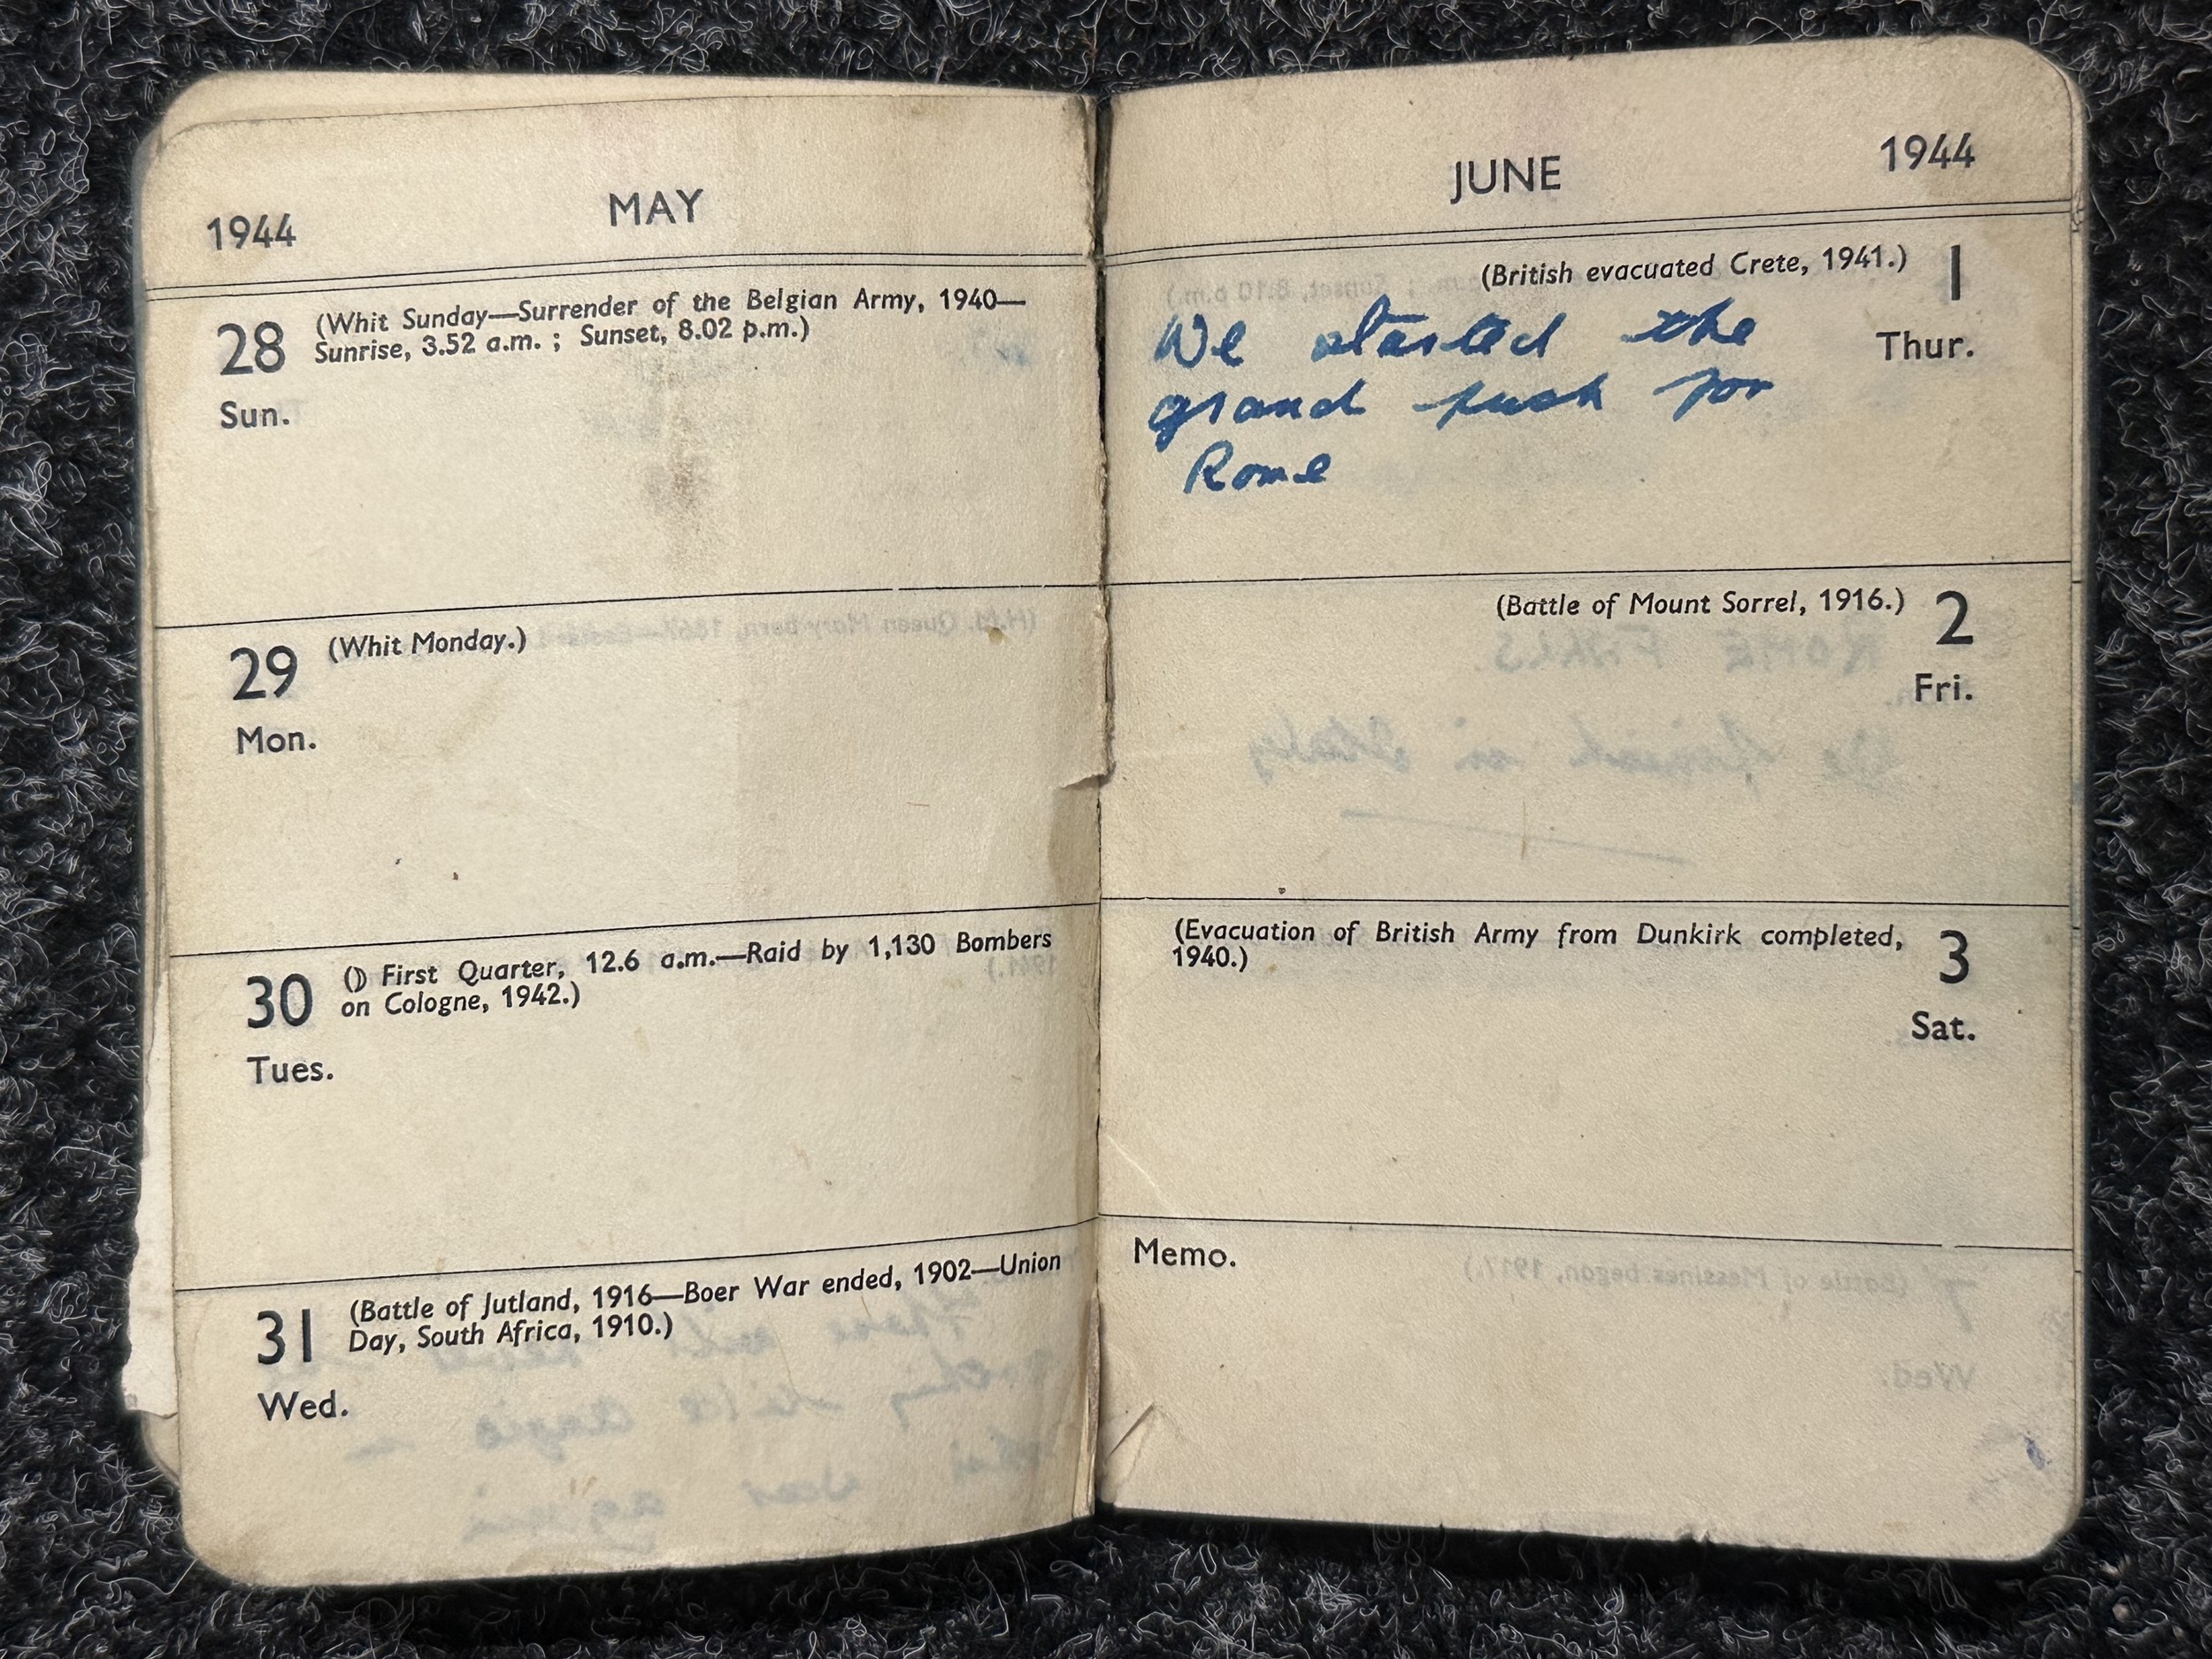 1944 MAY
28 (Whit Sunday—Surrender of the Belgian Army, 1940—
Sunrise, 3.52 a.m. ; Sunset, 8.02 p.m.)
Sun.
29 (Whit Monday.)
Mon.
30 (☽ First Quarter, 12.6 a.m.—Raid by 1,130 Bombers
on Cologne, 1942.)
Tues.
31 (Battle of Jutland, 1916—Boer War ended, 1902—Union
Day, South Africa, 1910.)
Wed.
JUNE 1944
(British evacuated Crete, 1941.) 1
Thur.
We started the
grand push for
Rome
(Battle of Mount Sorrel, 1916.) 2
Fri.
(Evacuation of British Army from Dunkirk completed, 3
1940.)
Sat.
Memo.